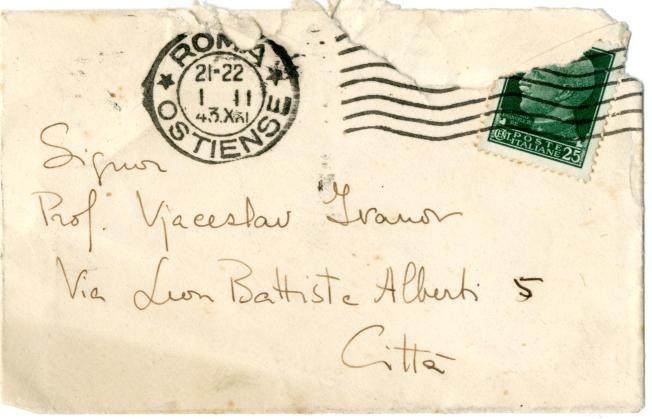 ROMA
21-22
1 II
43.XXI
OSTIENSE
POSTE
ITALIANE
CENT 25
Signor
Prof. Vjaceslav Ivanov
Via Leon Battista Alberti 5
Città